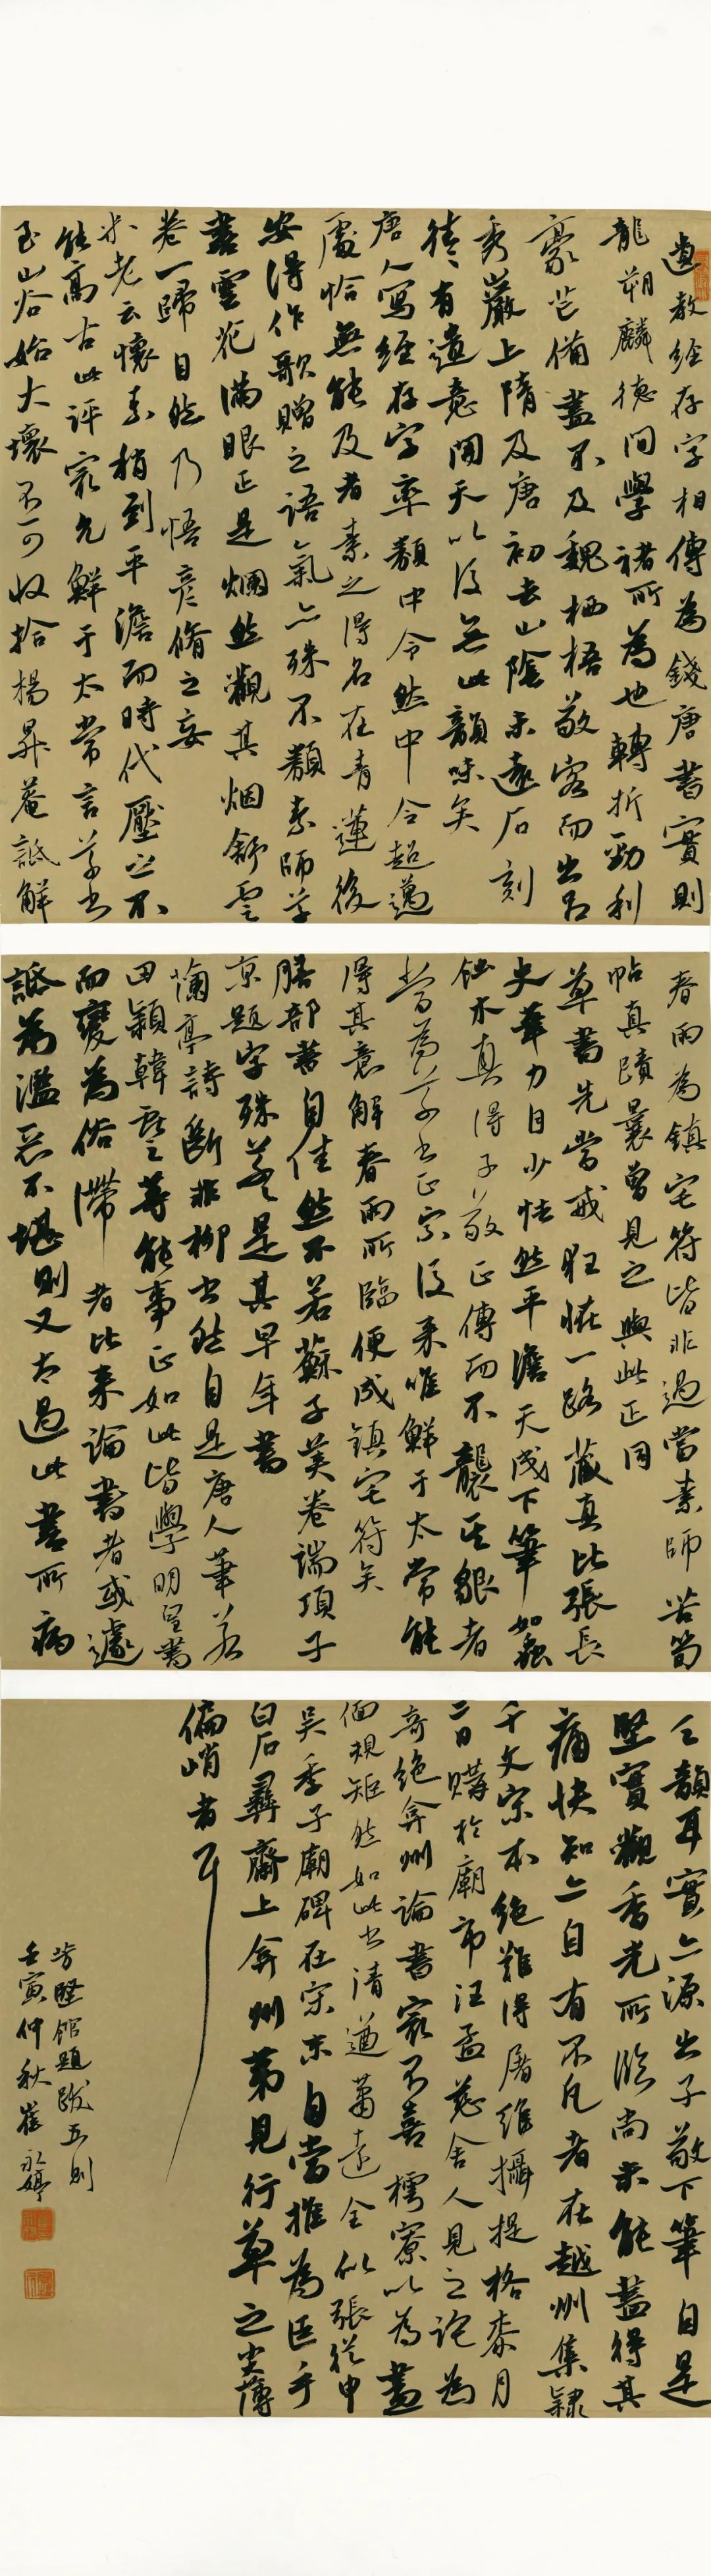 遺教經存字相傳為錢唐書實則
龍朔麟德間學褚所為也轉折勁利
豪芒備盡不及魏栖梧敬客而出呂
秀巖上隋及唐初去山陰未遠石刻
往往有遺意開天以後無此韻味矣
唐人寫經存字率類中令然中令超邁
處恰無能及者素之得名在青蓮後
安得作歌贈之語氣亦殊不類素師草
書雲花滿眼正是爛然觀其烟舒雲
卷一歸自然乃悟彥脩之妄
米老云懷素稍到平澹而時代壓之不
能高古此評冣允鮮于太常言草書
至山谷始大壞不可收拾楊昇菴詆解
春雨為鎮宅符皆非過當素師苦筍
帖真蹟曩曾見之與此正同
草書先當戒狂怪一路藏真比張長
史筆力自少怯然平澹天成下筆如蟲
蝕木真得子敬正傳而不襲其貌者
當為草書正宗後來唯鮮于太常能
得其意解春雨所臨便成鎮宅符矣
膳部書自佳然不若蘇子美卷端項子
京題字殊草草是其早年書
蘭亭詩斷非柳書然自是唐人筆若
田穎韓擇等能事正如此皆學明皇書
而變為俗滯者比來論書者或遽
詆為濫惡不堪則又太過此書所病
乏韻耳實亦源出子敬下筆自是
堅實觀香光所臨尚未能蓋得其
痛快知亦自有不凡者在越州集隸
千文宋本絕難得屠維攝提格桼月
二日購於廟市汪孟慈舍人見之詫為
奇絕弇州論書冣不喜樗寮以為盡
偭規矩然如此書清遒蕭遠全似張從申
吳季子廟碑在宋末自當推為巨手
白石彝齋上弇州第見行草之尖薄
偏峭者耳
壬寅仲秋崔永婷